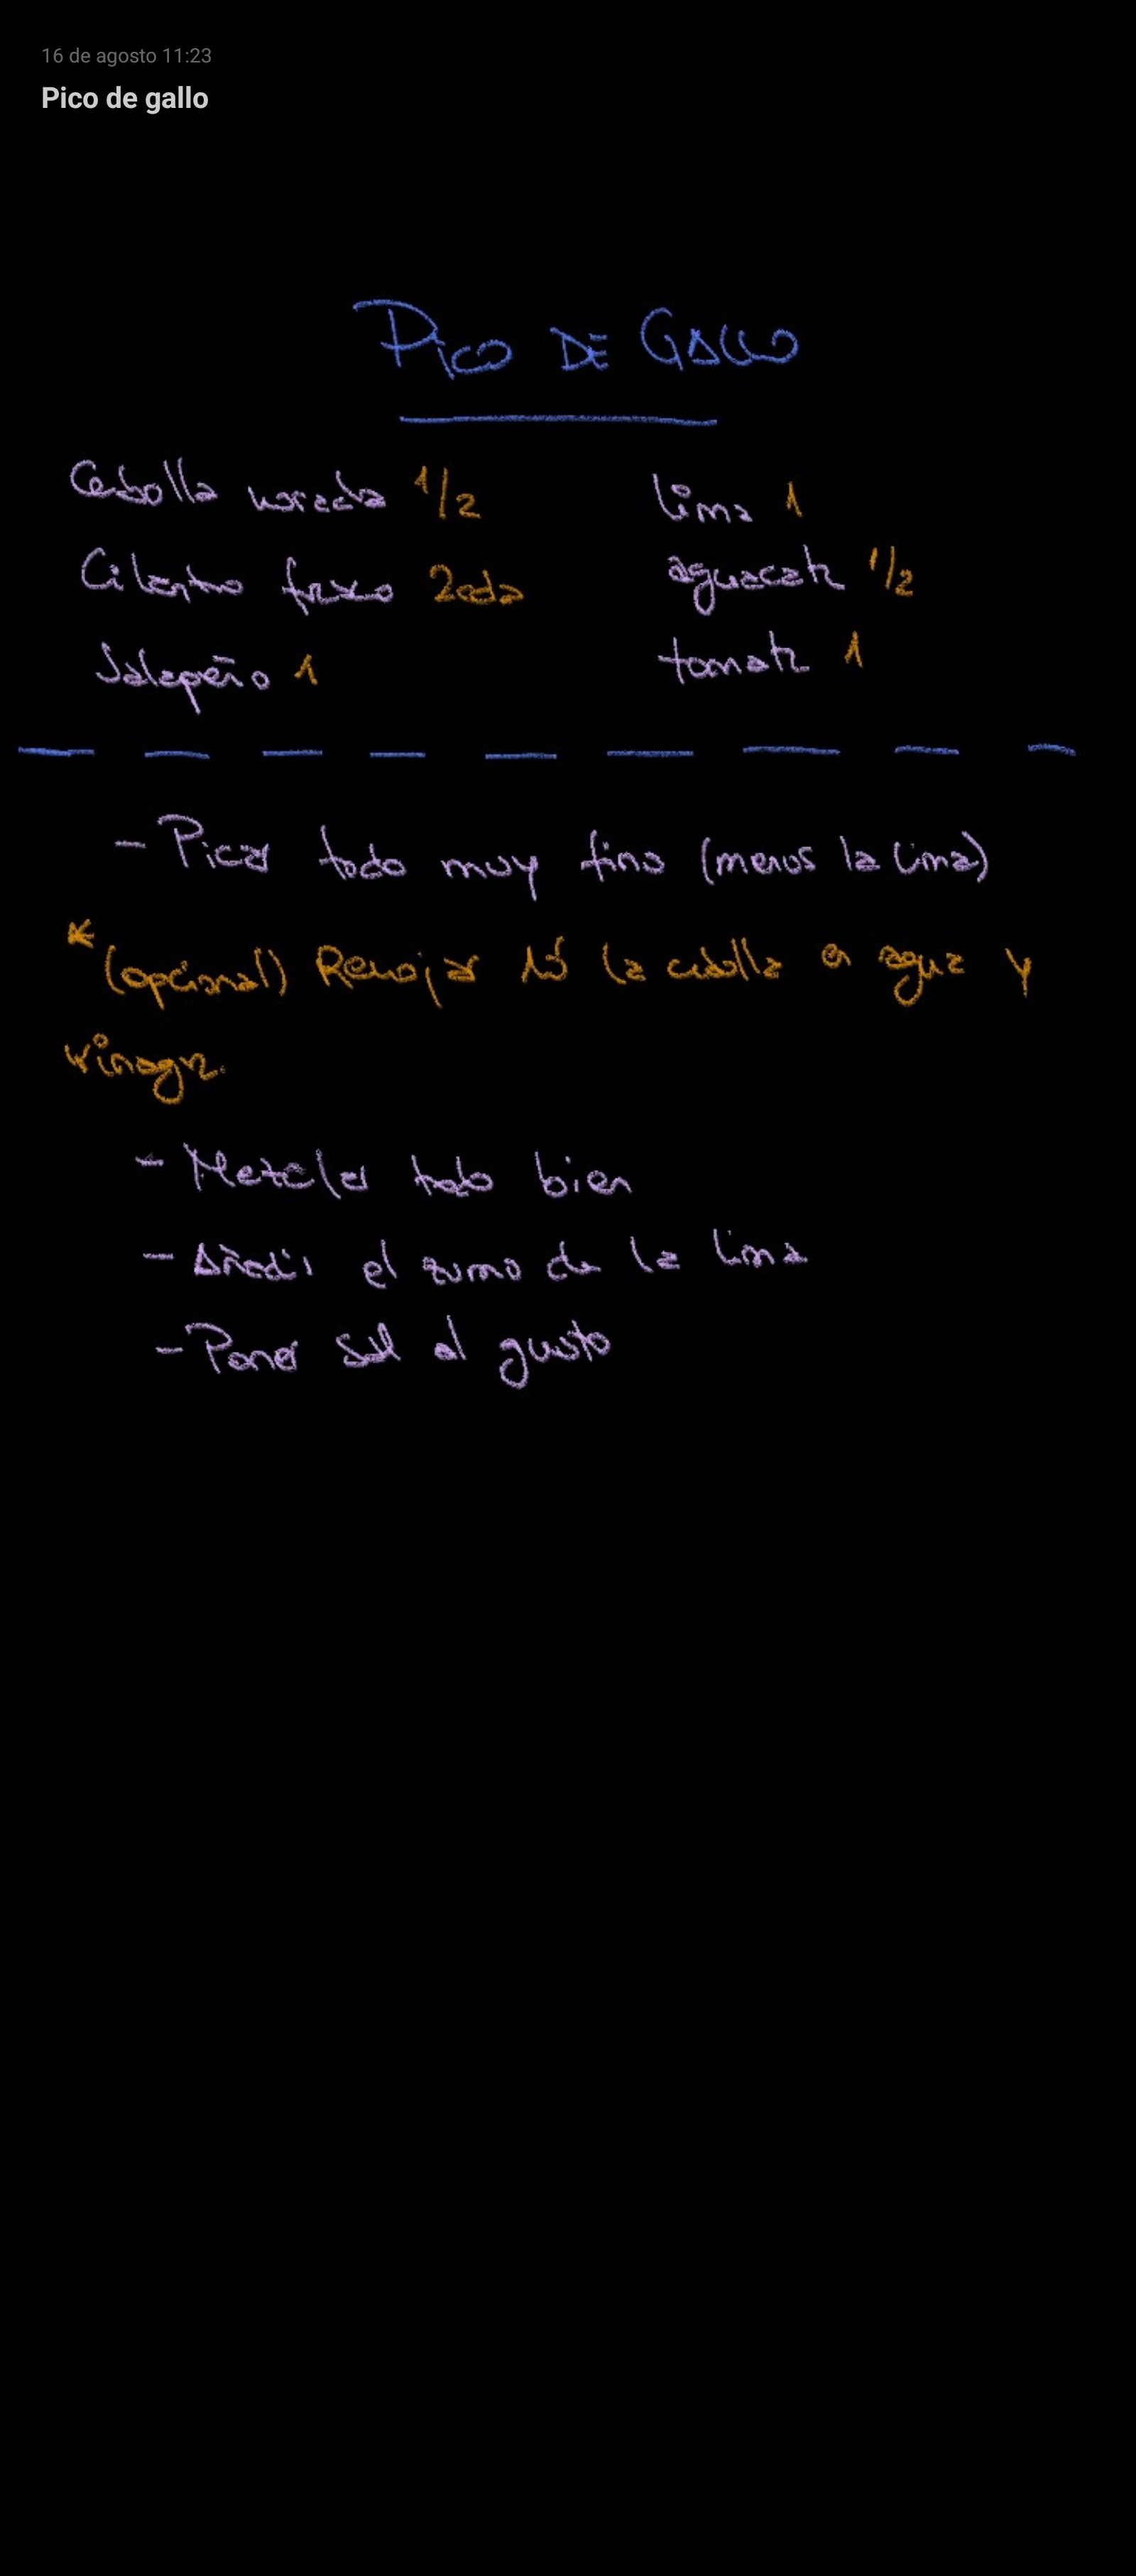 16 de agosto 11:23
Pico de gallo
PICO DE GALLO
Cebolla morada 1/2
Cilantro fresco 2cda
Jalapeño 1
lima 1
aguacate 1/2
tomate 1
- Picar todo muy fino (menos la lima)
* (opcional) Remojar 15' la cebolla en agua y
vinagre.
- Mezclar todo bien
- Añadir el zumo de la lima
- Poner sal al gusto